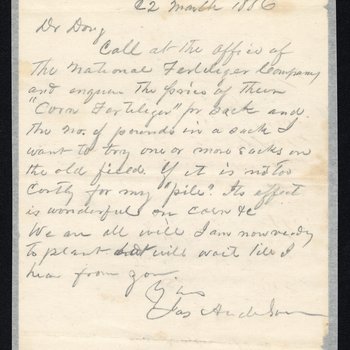 22 March 1886
Dr Doug
Call at the office of
the National Fertilizer Company
and enquire the price of their
"Corn Fertilizer" per sack and
the no. of pounds in a sack I
want to try one or more sacks on
the old field. If it is not too
Costly for my "pile". Its effect
is wonderful on corn &c
We are all well I am now ready
to plant but will wait till I
hear from you
Yrs
Jas Anderson